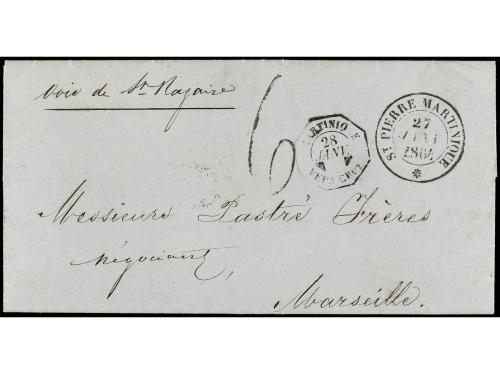 Voie de St. Nazaire
6
MARTINIQUE
28
JANV.
VERA CRUZ
ST PIERRE MARTINIQUE
27
JANV
186
Messieurs Pastré Frères
négociant,
Marseille.